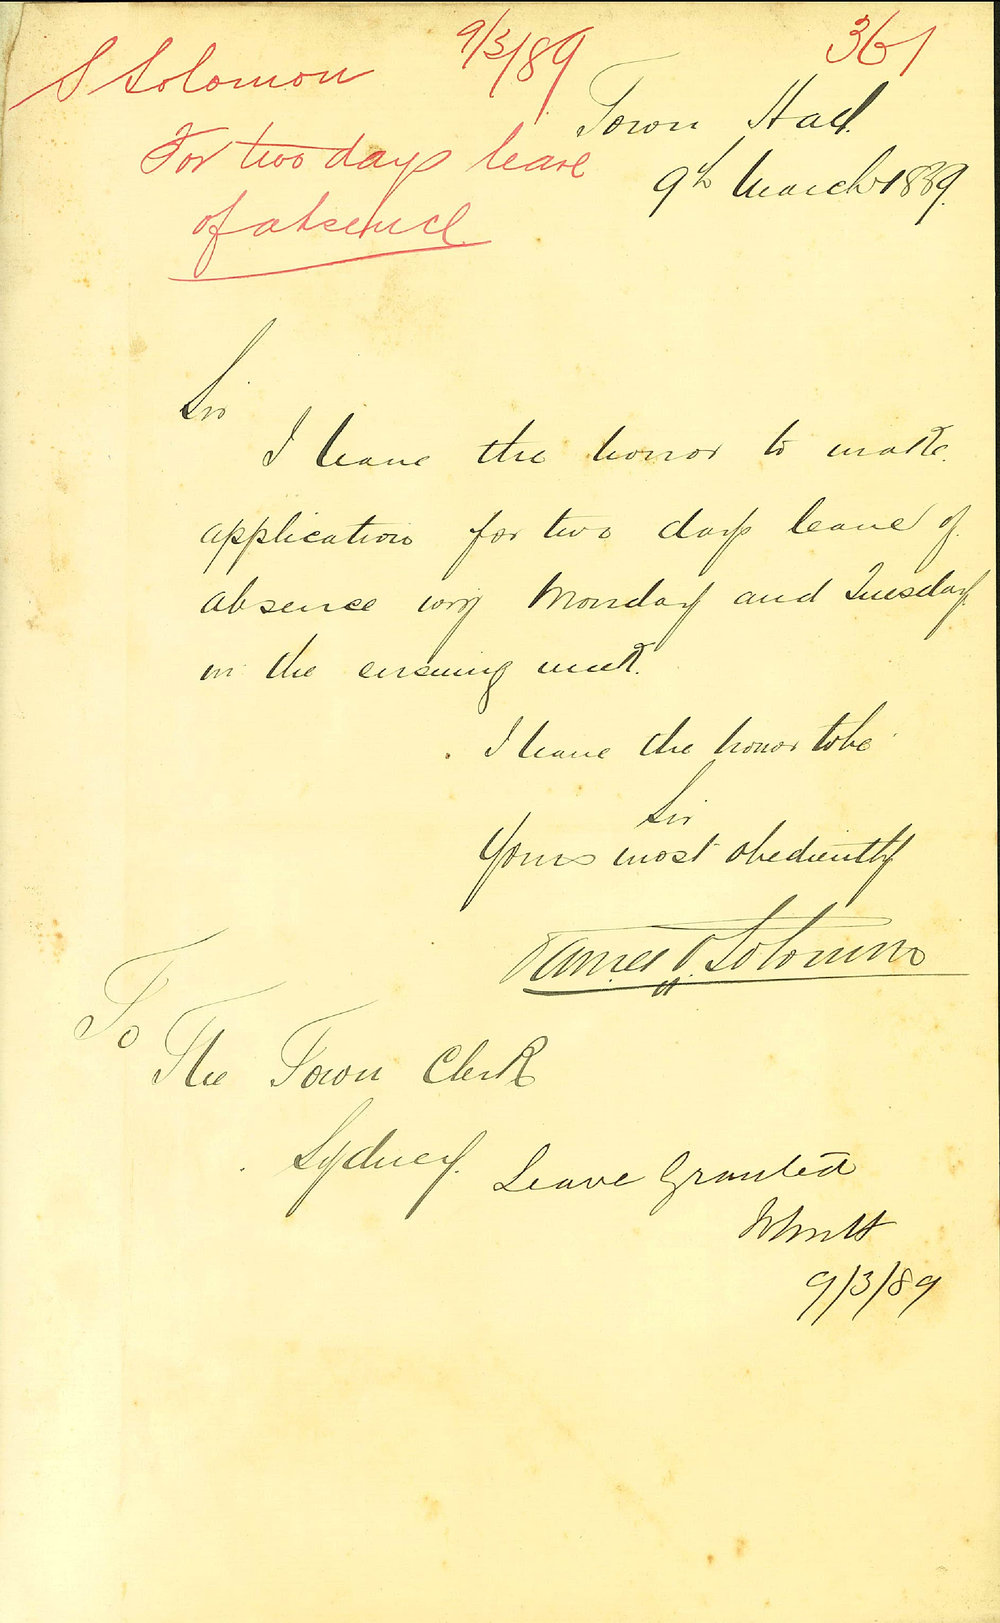 S Solomon 9/3/89 361
For two days leave
of absence
Town Hall
9th March 1889.
Sir
I have the honor to make
application for two days leave of
absence Monday and Tuesday
in the ensuing week.
I have the honor to be
Sir
Yours most obediently
James Solomon
To
The Town Clerk
Sydney.
Leave Granted
9/3/89